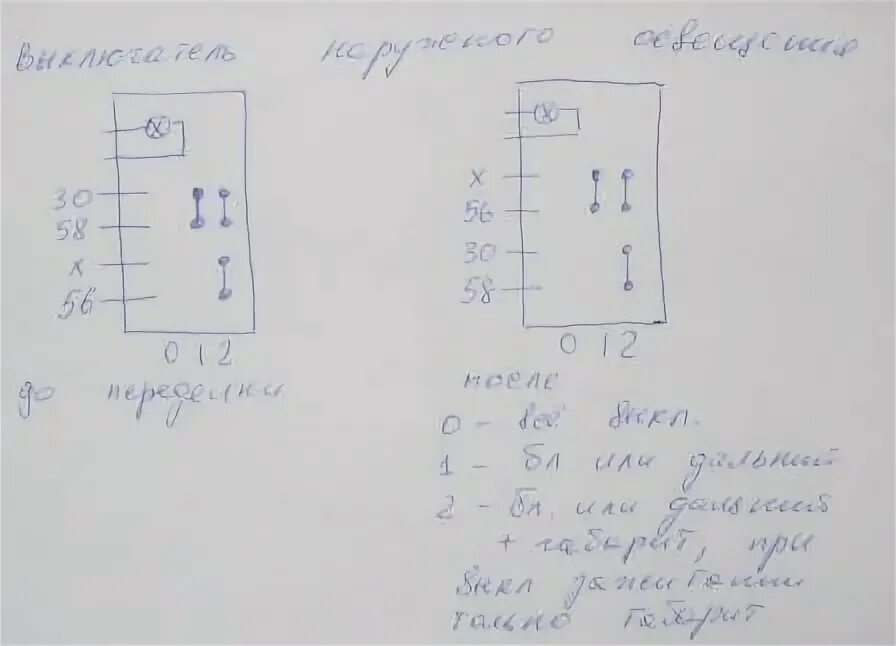 выключатель наружного освещения
30
58
X
56
0 1 2
до переделки
X
56
30
58
0 1 2
после
0 - всё выкл.
1 - бл или дальний
2 - бл. или дальний
+ габарит, при
выкл зажигании
только габарит